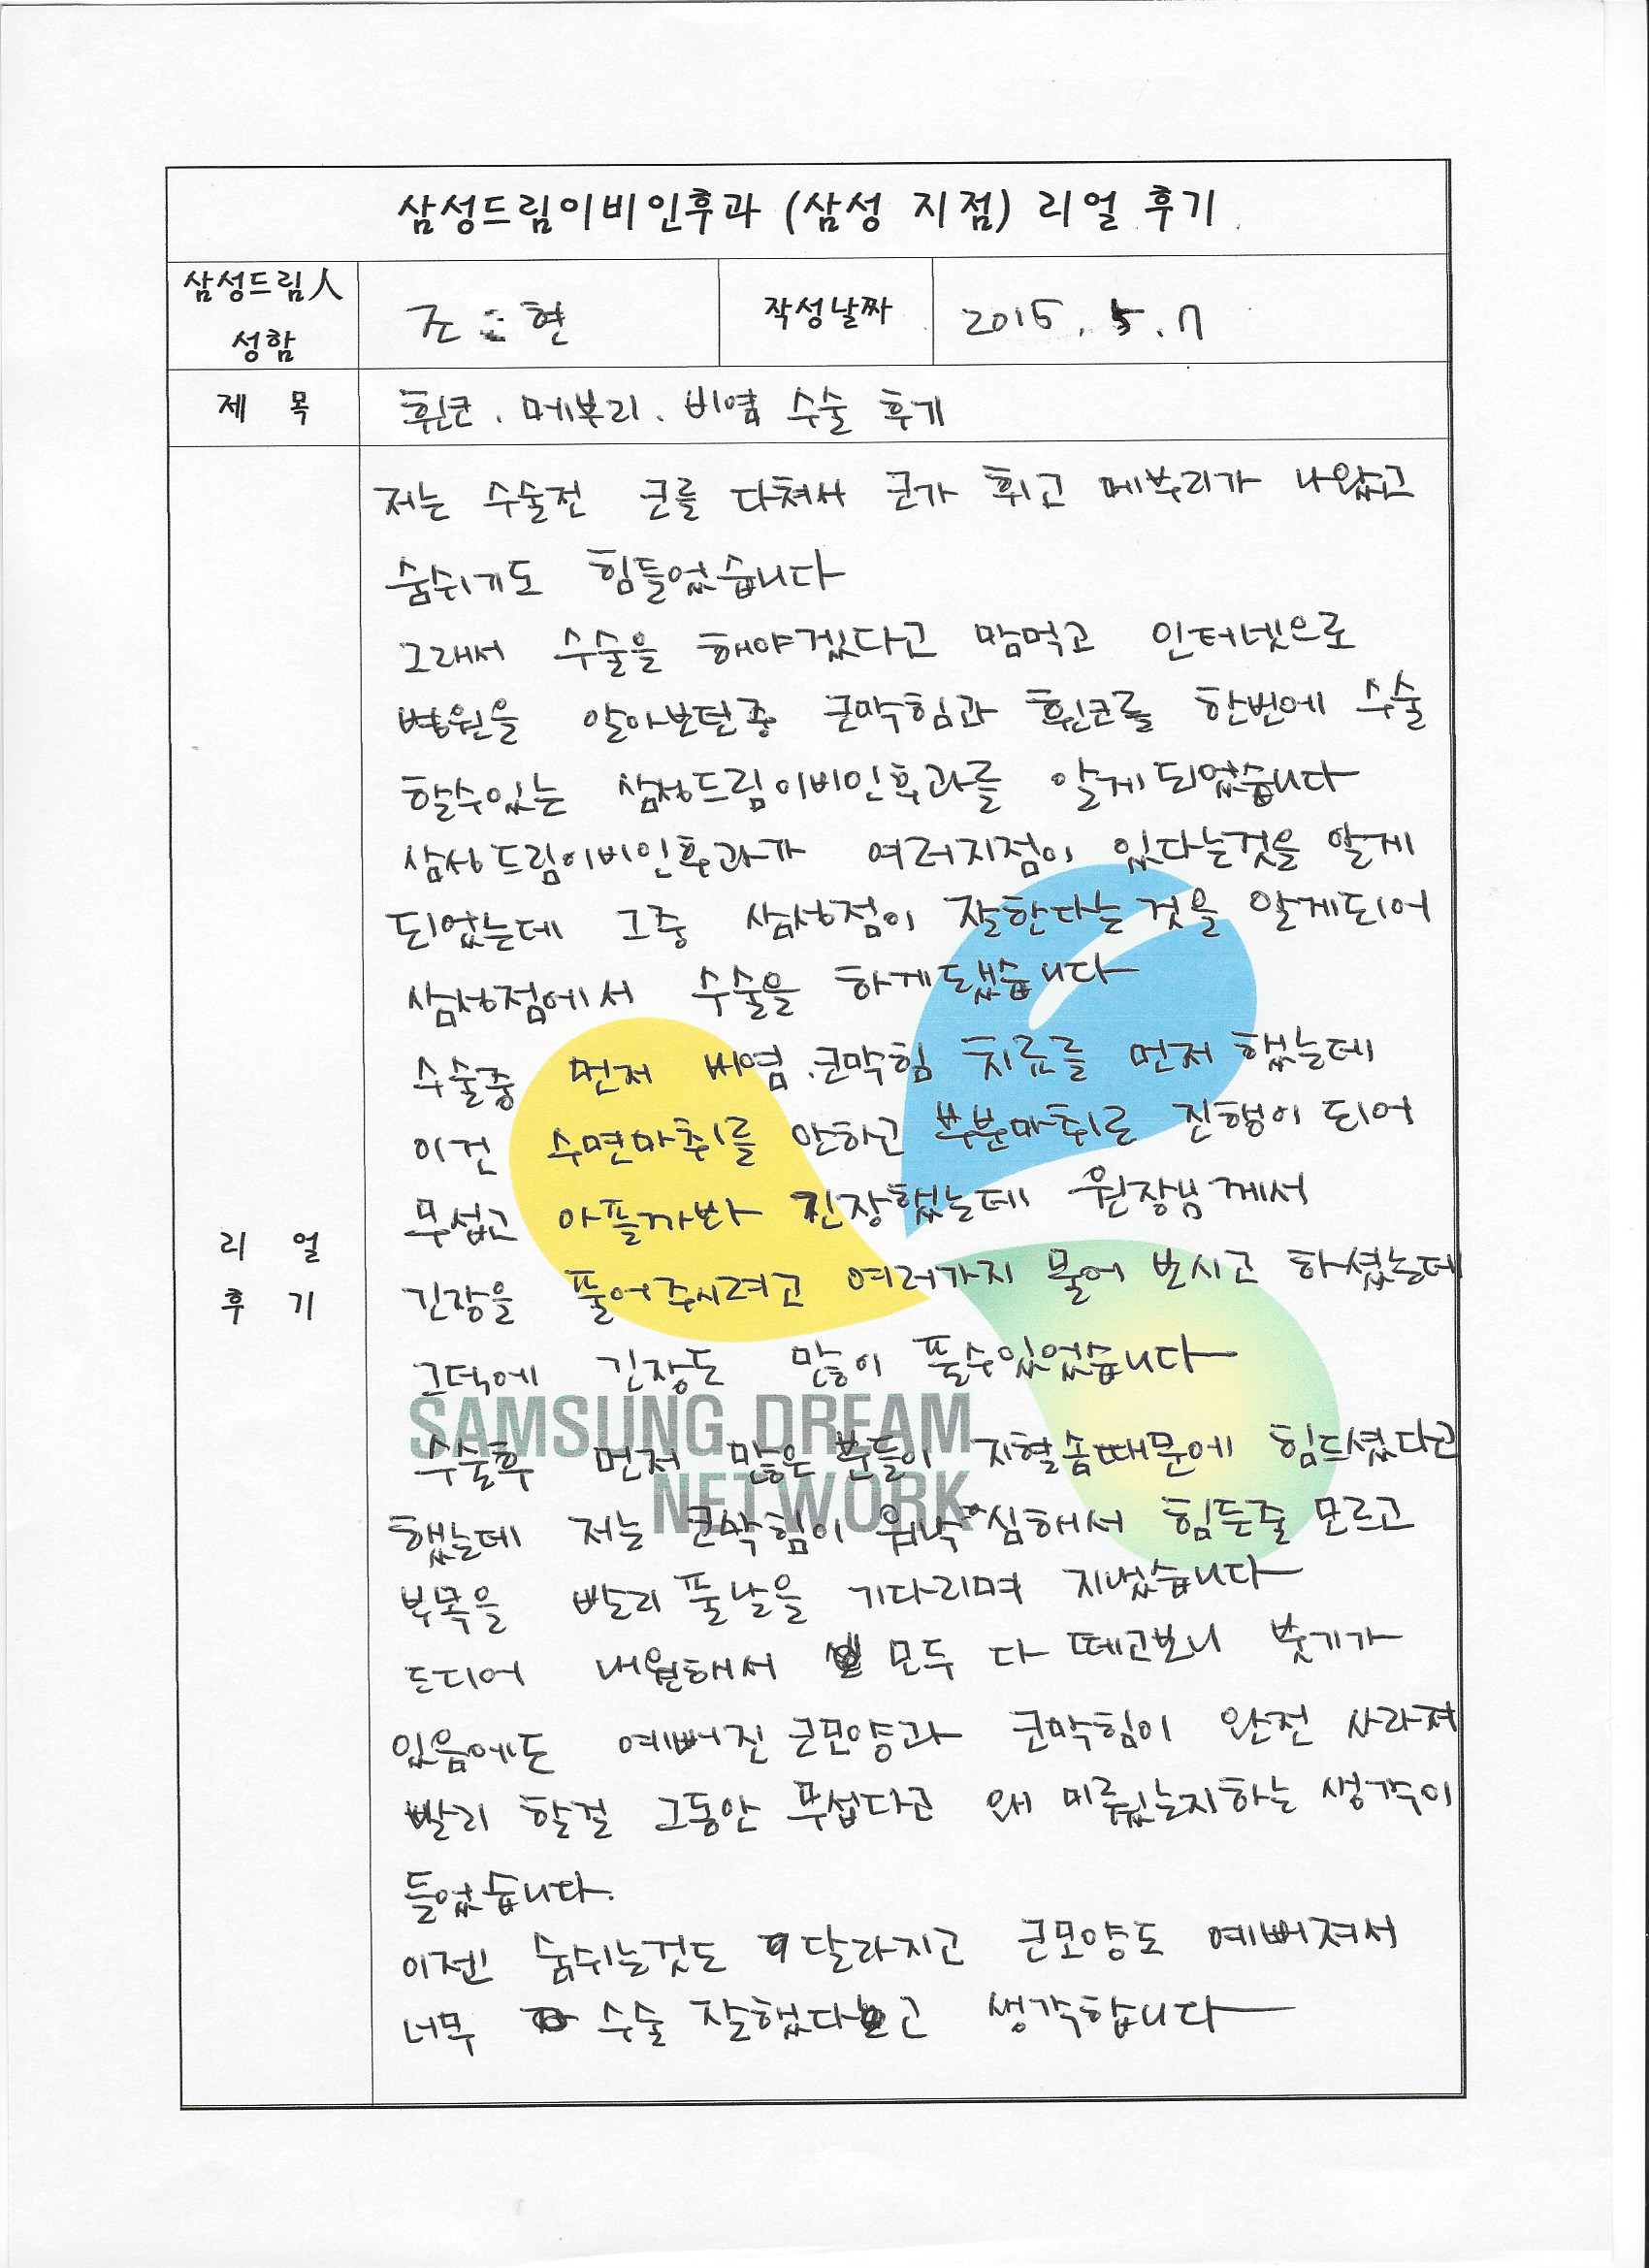 삼성드림이비인후과 (삼성 지점) 리얼 후기
삼성드림人 성함
조 현
작성날짜
2015. 5. 7
제 목
휜코. 메부리. 비염 수술 후기
리 얼 후 기
저는 수술전 코를 다쳐서 코가 휘고 메부리가 나왔고
숨쉬기도 힘들었습니다
그래서 수술을 해야겠다고 맘먹고 인터넷으로
병원을 알아보던중 코막힘과 휜코를 한번에 수술
할수있는 삼성드림이비인후과를 알게되었습니다
삼성드림이비인후과가 여러지점이 있다는것을 알게
되었는데 그중 삼성점이 잘한다는 것을 알게되어
삼성점에서 수술을 하게됐습니다
수술중 먼저 비염.코막힘 치료를 먼저 했는데
이건 수면마취를 안하고 부분마취로 진행이 되어
무섭고 아플까봐 긴장했는데 원장님께서
긴장을 풀어주시려고 여러가지 물어 보시고 하셨는데
그덕에 긴장도 많이 풀수있었습니다
SAMSUNG DREAM
NETWORK
수술후 먼저 많은 분들이 지혈솜때문에 힘드셨다고
했는데 저는 코막힘이 워낙 심해서 힘든줄 모르고
부목을 빨리 풀날을 기다리며 지냈습니다
드디어 내원해서 모두 다 떼고보니 붓기가
있음에도 예뻐진 코모양과 코막힘이 완전 사라져
빨리 할걸 그동안 무섭다고 왜 미뤘는지하는 생각이
들었습니다.
이젠 숨쉬는것도 달라지고 코모양도 예뻐져서
너무 수술 잘했다고 생각합니다